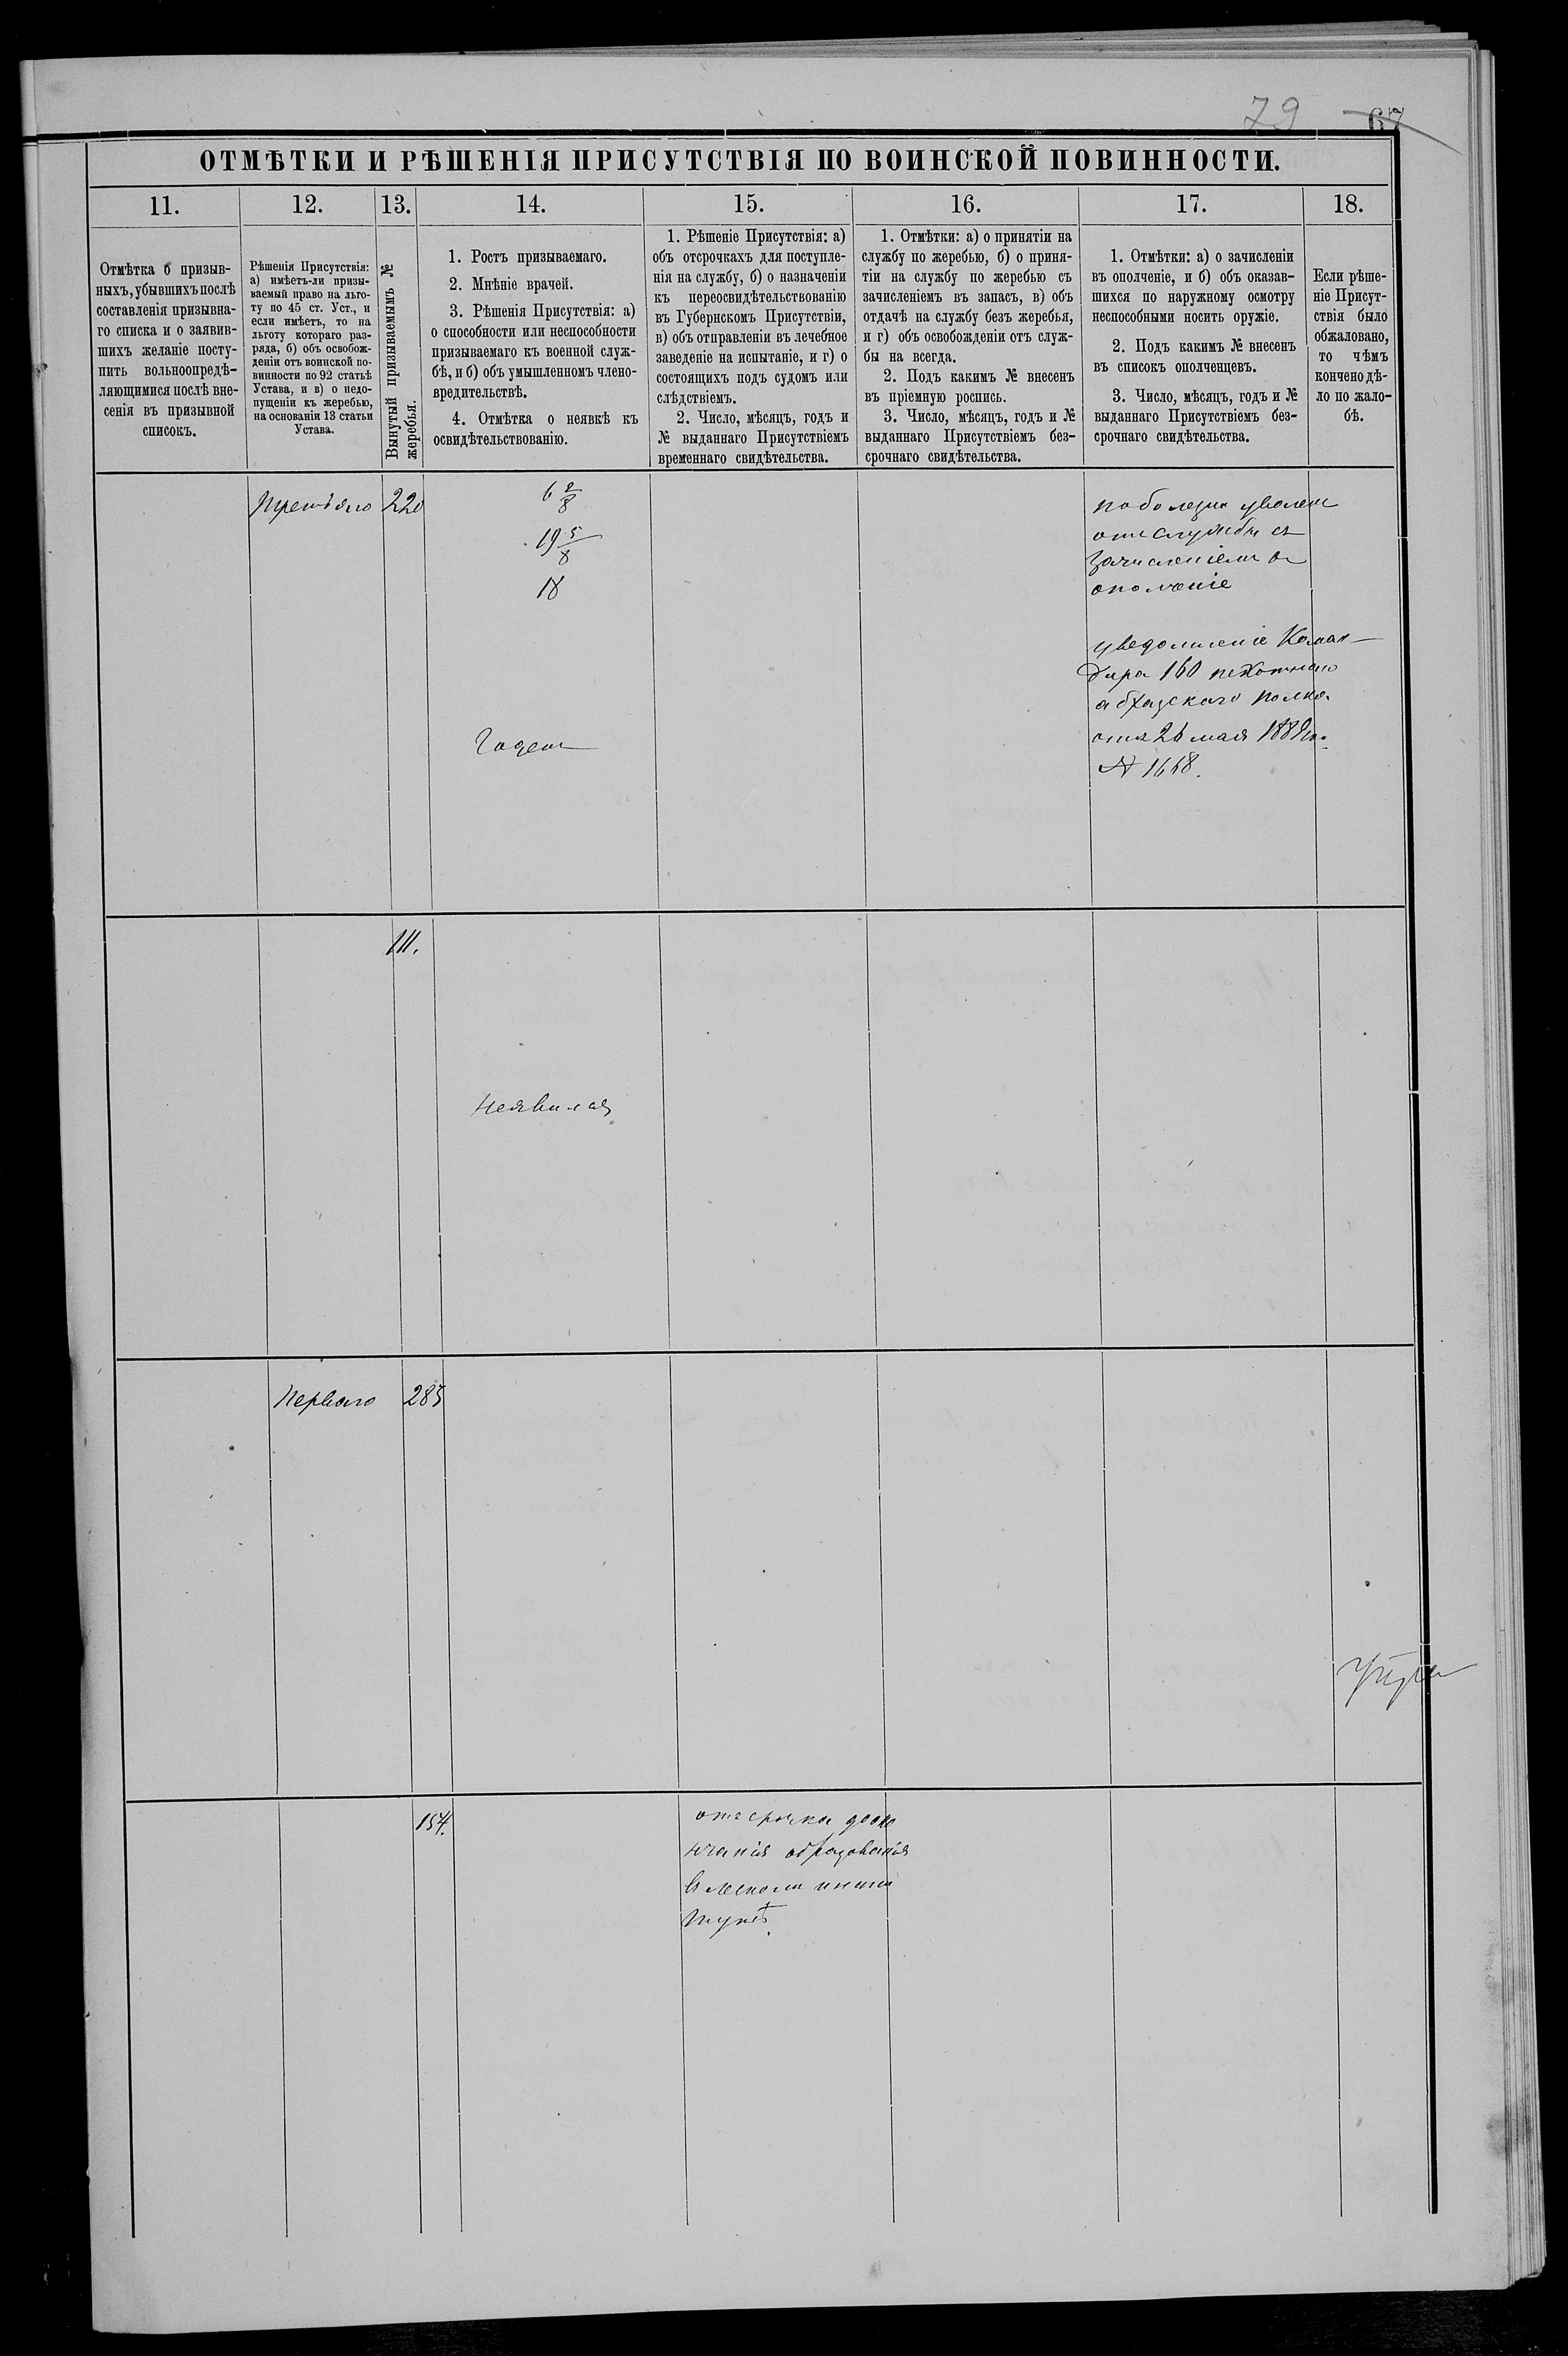 79 67
ОТМѢТКИ И РѢШЕНІЯ ПРИСУТСТВІЯ ПО ВОИНСКОЙ ПОВИННОСТИ.
11. 12. 13. 14. 15. 16. 17. 18.
Отмѣтка о призыв-
ныхъ, убывшихъ послѣ
составленія призывна-
го списка и о заявив-
шихъ желаніе посту-
пить вольноопредѣ-
ляющимися послѣ вне-
сенія въ призывной
списокъ.
Рѣшенія Присутствія:
а) имѣетъ-ли призы-
ваемый право на льго-
ту по 45 ст. Уст., и
если имѣетъ, то на
льготу котораго раз-
ряда, б) объ освобож-
деніи отъ воинской по-
винности по 92 статьѣ
Устава, и в) о недо-
пущеніи къ жеребью,
на основаніи 13 статьи
Устава.
Вынутый призываемымъ №
жеребья.
1. Ростъ призываемаго.
2. Мнѣніе врачей.
3. Рѣшенія Присутствія: а)
о способности или неспособности
призываемаго къ военной служ-
бѣ, и б) объ умышленномъ члено-
вредительствѣ.
4. Отмѣтка о неявкѣ къ
освидѣтельствованію.
1. Рѣшеніе Присутствія: а)
объ отсрочкахъ для поступле-
нія на службу, б) о назначеніи
къ переосвидѣтельствованію
въ Губернскомъ Присутствіи,
в) объ отправленіи въ лечебное
заведеніе на испытаніе, и г) о
состоящихъ подъ судомъ или
слѣдствіемъ.
2. Число, мѣсяцъ, годъ и
№ выданнаго Присутствіемъ
временнаго свидѣтельства.
1. Отмѣтки: а) о принятіи на
службу по жеребью, б) о приня-
тіи на службу по жеребью съ
зачисленіемъ въ запасъ, в) объ
отдачѣ на службу безъ жеребья,
и г) объ освобожденіи отъ служ-
бы на всегда.
2. Подъ какимъ № внесенъ
въ пріемную роспись.
3. Число, мѣсяцъ, годъ и №
выданнаго Присутствіемъ без-
срочнаго свидѣтельства.
1. Отмѣтки: а) о зачисленіи
въ ополченіе, и б) объ оказав-
шихся по наружному осмотру
неспособными носить оружіе.
2. Подъ какимъ № внесенъ
въ списокъ ополченцевъ.
3. Число, мѣсяцъ, годъ и №
выданнаго Присутствіемъ без-
срочнаго свидѣтельства.
Если рѣше-
ніе Присут-
ствія было
обжаловано,
то чѣмъ
кончено дѣ-
ло по жало-
бѣ.
третьяго 220
6 2/8
19 5/8
18
Годенъ
по болезни уволенъ
отъ службы съ
зачисленіемъ въ
ополченіе
уведомленіе Коман-
дира 160 пехотнаго
абхазскаго полка
отъ 26 мая 1889 го.
№ 1668.
111.
неявился
Перваго 285
154.
отсрочка доок
нчанія образованія
въ лесномъ инсти
тутѣ.